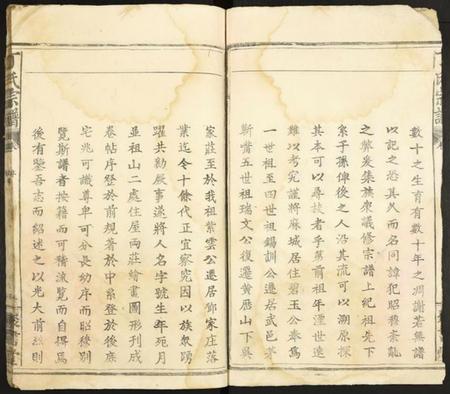 數十之生育有數十年之凋謝若無譜
以記之恐其久而名同諱犯昭穆紊亂
之弊爰集族衆議修宗譜上紀祖先下
系子孫俾後之人沿其流可以溯原探
其本可以尋枝者乎第前祖年湮世遠
難以考究謹將麻城居住碧玉公奉為
一世祖至四世祖錫訓公遷居武邑茅
斯嘴五世祖瑞文公復遷黃厯山下吳
家莊至於我祖紫雲公遷居鄧家庄落
業迄今十餘代正宜察究因以族衆踴
躍共勷厥事遂將人名字號生年死月
並祖山二處住屋兩莊繪畫圖形刊成
卷帖序登於前規著於中系登於後庶
宅兆可識尊卑可分長幼序而昭穆別
覽斯譜者按籍而可稽流覽而自得爲
後有鑒吾志而紹述之以光大前緒則
丁氏宗譜